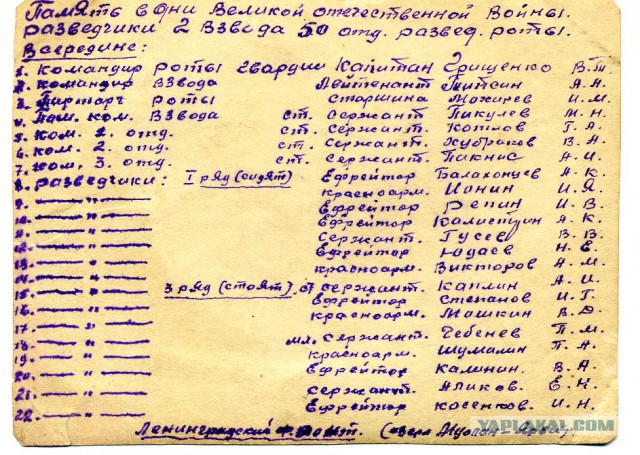 Память в дни Великой отечественной Войны.
разведчики 2 Взвода 50 отд. развед. роты.
В середине:
1. Командир роты гвардии Капитан Грищенко В.Т.
2. Командир Взвода Лейтенант Питсин А.Н.
3. Парторг роты Старшина И.М.
4. Пом. ком. Взвода ст. сержант Пикулев М.Н.
5. Ком. 1. отд. ст. сержант Котлов Г.А.
6. ком. 2. отд. ст. сержант В.А.
7. ком. 3. отд. ст. сержант Пакнис А.И.
8. разведчики: I ряд (сидят) Ефрейтор Балахонцев А.К.
9. —— " —— красноарм. Ионин И.Я
10. —— " —— Ефрейтор Репин И.В.
11. —— " —— Ефрейтор А.К.
12. —— " —— Сержант. Гусев В.В.
13. —— " —— Ефрейтор Юдаев Н.Е.
14. —— " —— красноарм. Викторов А.М.
15. —— " —— 3 ряд (стоят) ст сержант. Каплин А.И.
16. —— " —— Ефрейтор Степанов И.Г.
17. —— " —— красноарм. Машкин В.Д.
18. —— " —— мл. сержант. Чебенев П.М.
19. —— " —— красноарм. Шумалин П.А.
20. —— " —— Ефрейтор Калинин В.А.
21. —— " —— сержант. Аликов. Е.К.
22. —— " —— Ефрейтор Косенков. И.Н.
Ленинградский Фронт.
YAPLAKAL.COM